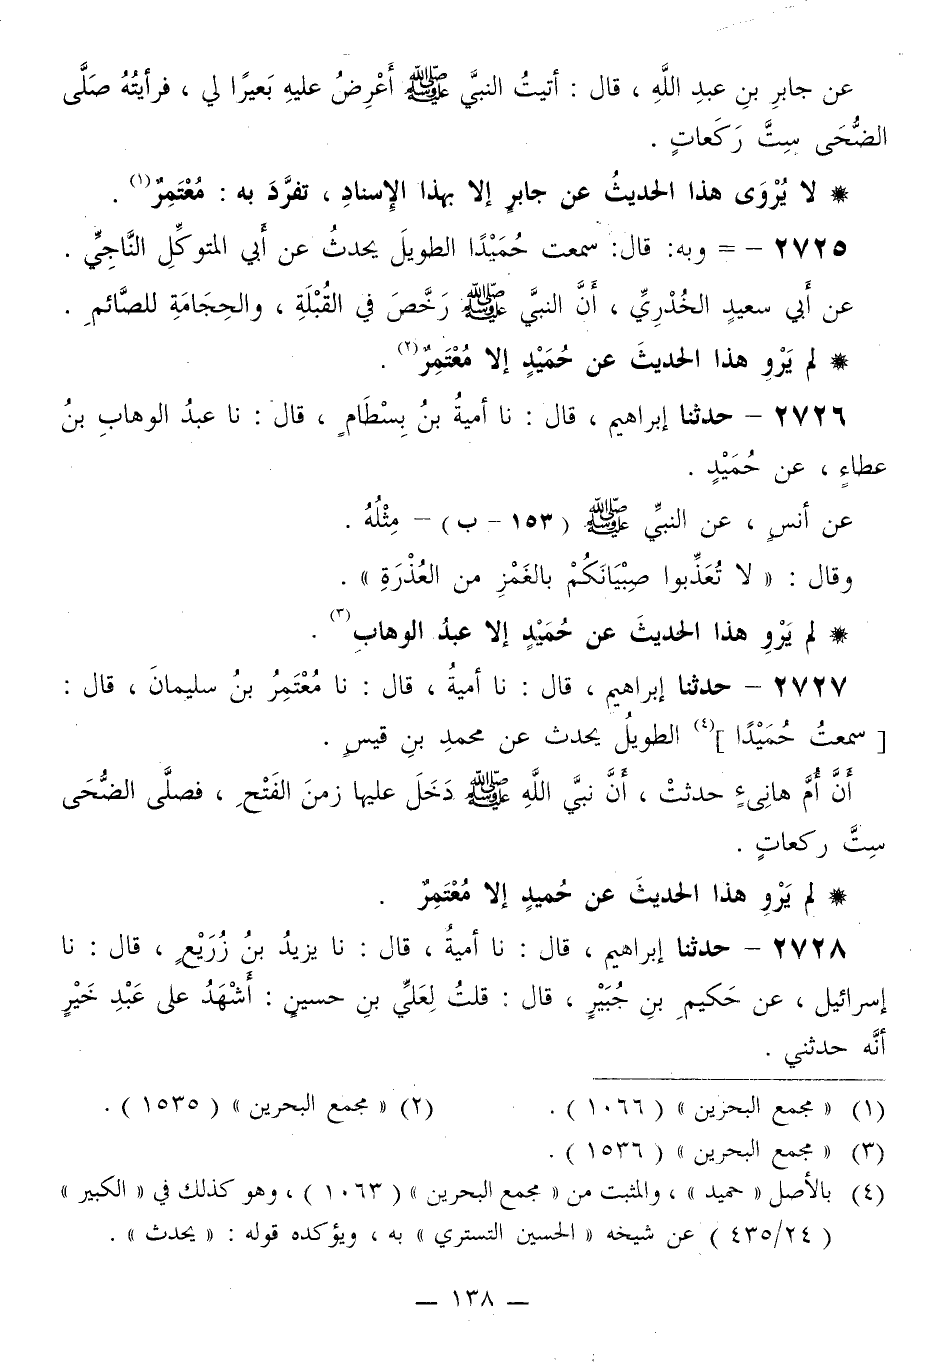 عن جابرِ بنِ عبدِ اللَّهِ ، قال : أتيتُ النبيَّ ﷺ أَعْرِضُ عليهِ بَعيرًا لي ، فرأيتُهُ صَلَّى
الضُّحَى سِتَّ رَكَعاتٍ .
* لا يُرْوَى هذا الحديثُ عن جابرٍ إلا بهذا الإِسنادِ ، تفرَّدَ به : مُعْتَمِرٌ(١) .
٢٧٢٥ - = وبه: قال: سمعت حُمَيْدًا الطويلَ يحدثُ عن أَبي المتوكِّلِ النَّاجِيِّ .
عن أَبي سعيدٍ الخُدْرِيِّ ، أَنَّ النبيَّ ﷺ رَخَّصَ في القُبْلَةِ ، والحِجَامَةِ للصَّائمِ .
* لم يَرْوِ هذا الحديثَ عن حُمَيْدٍ إلا مُعْتَمِرٌ(٢) .
٢٧٢٦ - حدثنا إبراهيم ، قال : نا أميةُ بنُ بِسْطَامٍ ، قال : نا عبدُ الوهابِ بنُ
عطاءٍ ، عن حُمَيْدٍ .
عن أنسٍ ، عن النبيِّ ﷺ ( ١٥٣ - ب ) - مِثْلُهُ .
وقال : « لا تُعَذِّبوا صِبْيَانَكُمْ بالغَمْزِ من العُذْرَةِ » .
* لم يَرْوِ هذا الحديثَ عن حُمَيْدٍ إلا عبدُ الوهابِ(٣) .
٢٧٢٧ - حدثنا إبراهيم ، قال : نا أميةُ ، قال : نا مُعْتَمِرُ بنُ سليمانَ ، قال :
[ سمعتُ حُمَيْدًا ](٤) الطويلُ يحدث عن محمدِ بنِ قيسٍ .
أَنَّ أُمَّ هانِىءٍ حدثتْ ، أَنَّ نبيَّ اللَّهِ ﷺ دَخَلَ عليها زمنَ الفَتْحِ ، فصلَّى الضُّحَى
سِتَّ ركعاتٍ .
* لم يَرْوِ هذا الحديثَ عن حُميدٍ إلا مُعْتَمِرٌ .
٢٧٢٨ - حدثنا إبراهيم ، قال : نا أميةُ ، قال : نا يزيدُ بنُ زُرَيْعٍ ، قال : نا
إسرائيل ، عن حَكيمِ بنِ جُبَيْرٍ ، قال : قلتُ لِعَليِّ بنِ حسينٍ : أَشْهَدُ على عَبْدِ خَيْرٍ
أنَّه حدثني .
(١) « مجمع البحرين » ( ١٠٦٦ ) . (٢) « مجمع البحرين » ( ١٥٣٥ ) .
(٣) « مجمع البحرين » ( ١٥٣٦ ) .
(٤) بالأصل « حميد » ، والمثبت من « مجمع البحرين » ( ١٠٦٣ ) ، وهو كذلك في « الكبير »
( ٤٣٥/٢٤ ) عن شيخه « الحسين التستري » به ، ويؤكده قوله : « يحدث » .
— ١٣٨ —